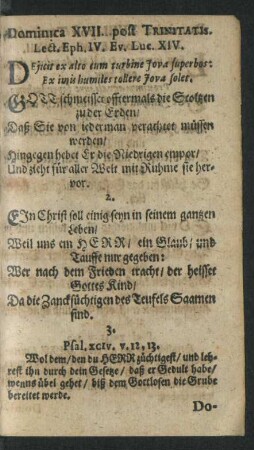 Dominica XVII. post TRINITATIS.
Lect. Eph. IV. Ev. Luc. XIV.
DEjicit ex alto cum turbine Jova superbos:
Ex imis humiles tollere Jova solet.
GOTT schmeisset offtermals die Stoltzen
zu der Erden/
Daß Sie von iederman verachtet müssen
werden/
Hingegen hebet Er die Niedrigen empor/
Und zieht für aller Welt mit Ruhme sie her-
vor.
2.
EIn Christ soll einig seyn in seinem gantzen
Leben/
Weil uns ein HERR/ ein Glaub/ und
Tauffe nur gegeben:
Wer nach dem Frieden tracht/ der heisset
Gottes Kind/
Da die Zancksüchtigen des Teufels Saamen
sind.
3.
Psal. xciv. v. 12, 13.
Wol dem/ den du HERR züchtigest/ und leh-
rest ihn durch dein Gesetze/ daß er Gedult habe/
wenns übel gehet/ biß dem Gottlosen die Grube
bereitet werde.
Do-